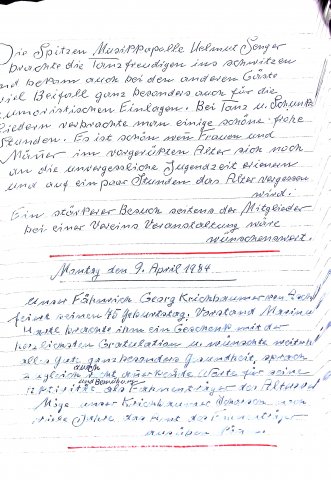 Die Spitzen Musikkapelle Helmut Senger
brachte die Tanzfreudigen ins schwitzen
und bekam auch bei den anderen Gäste
viel Beifall ganz besonders auch für die
humoristischen Einlagen. Bei Tanz u. Schunkel
liedern verbrachte man einige schöne frohe
Stunden. Es ist schön wenn Frauen und
Männer im vorgerükten Alter sich noch
an die unvergessliche Jugendzeit erinern
und auf ein paar Stunden das Alter vergessen
wird.
Ein stärkerer Besuch seitens der Mitglieder
bei einer Vereins Veranstaltung wäre
wünschenswert.
Montag den 9. April 1984
Unser Fähnrich Georg Krichbaumer
feiert seinen Geburtstag. Vorstand
brachte ihm ein Geschenk mit der
herzlichsten Gratulation u. wünschte weiterhin
alles gut ganz besonders Gesundheit, sprach
zugleich auch Worte für seine
und Bemühung
als Fahnenträger
Möge unser Krichbaumer noch
viele Jahre das
ausüben